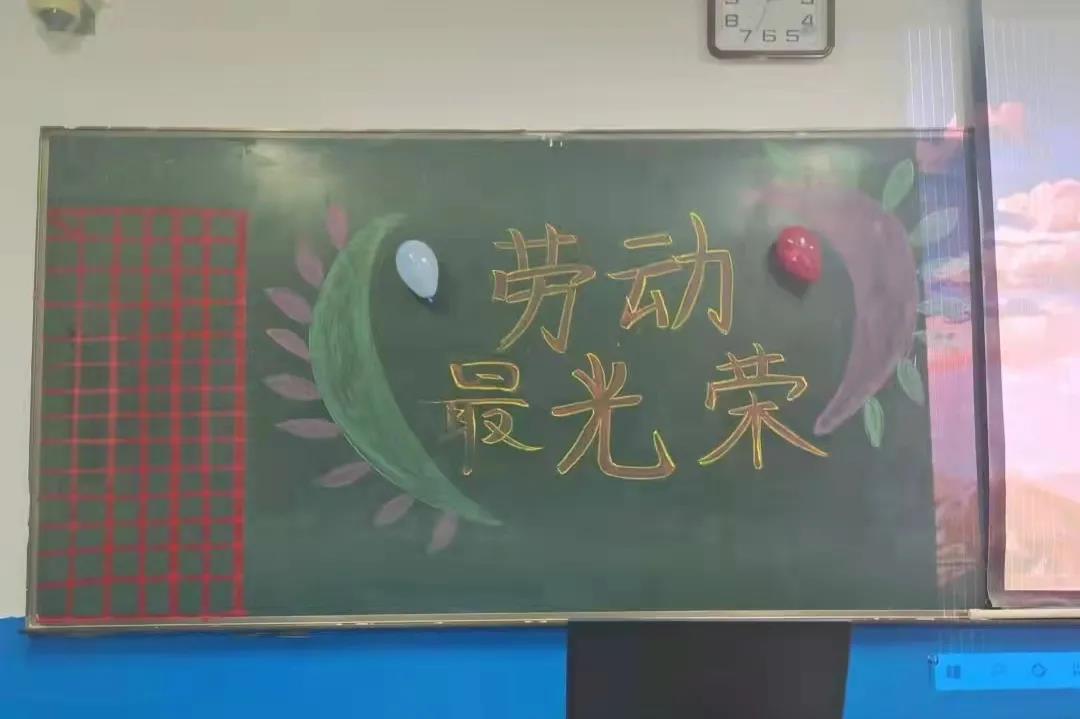 8 4
7 6 5
劳动
最光荣